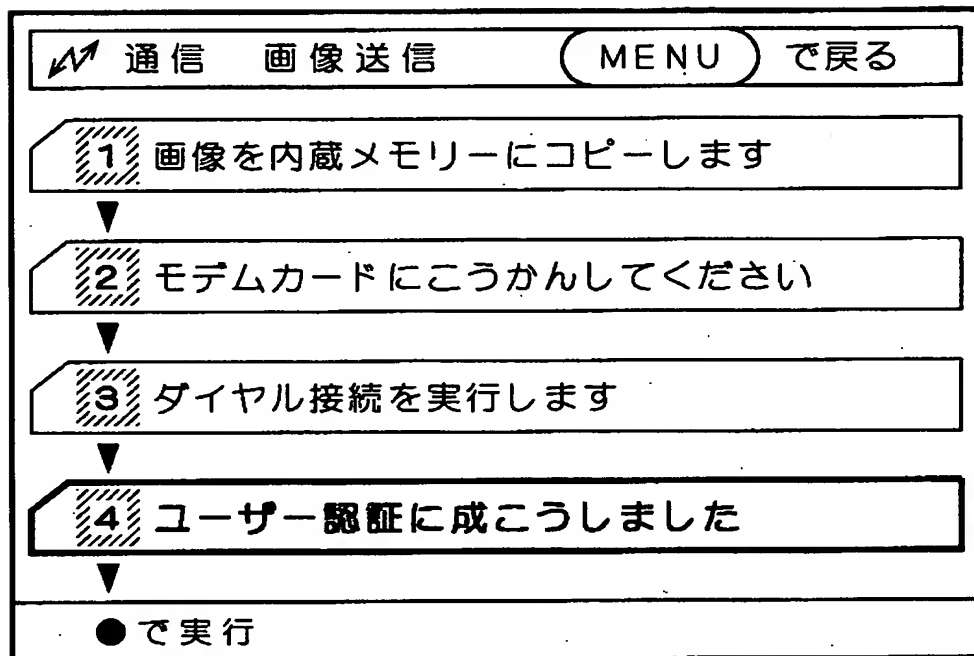 通信　画像送信　MENU で戻る
1 画像を内蔵メモリーにコピーします
2 モデムカードにこうかんしてください
3 ダイヤル接続を実行します
4 ユーザー認証に成こうしました
●で実行